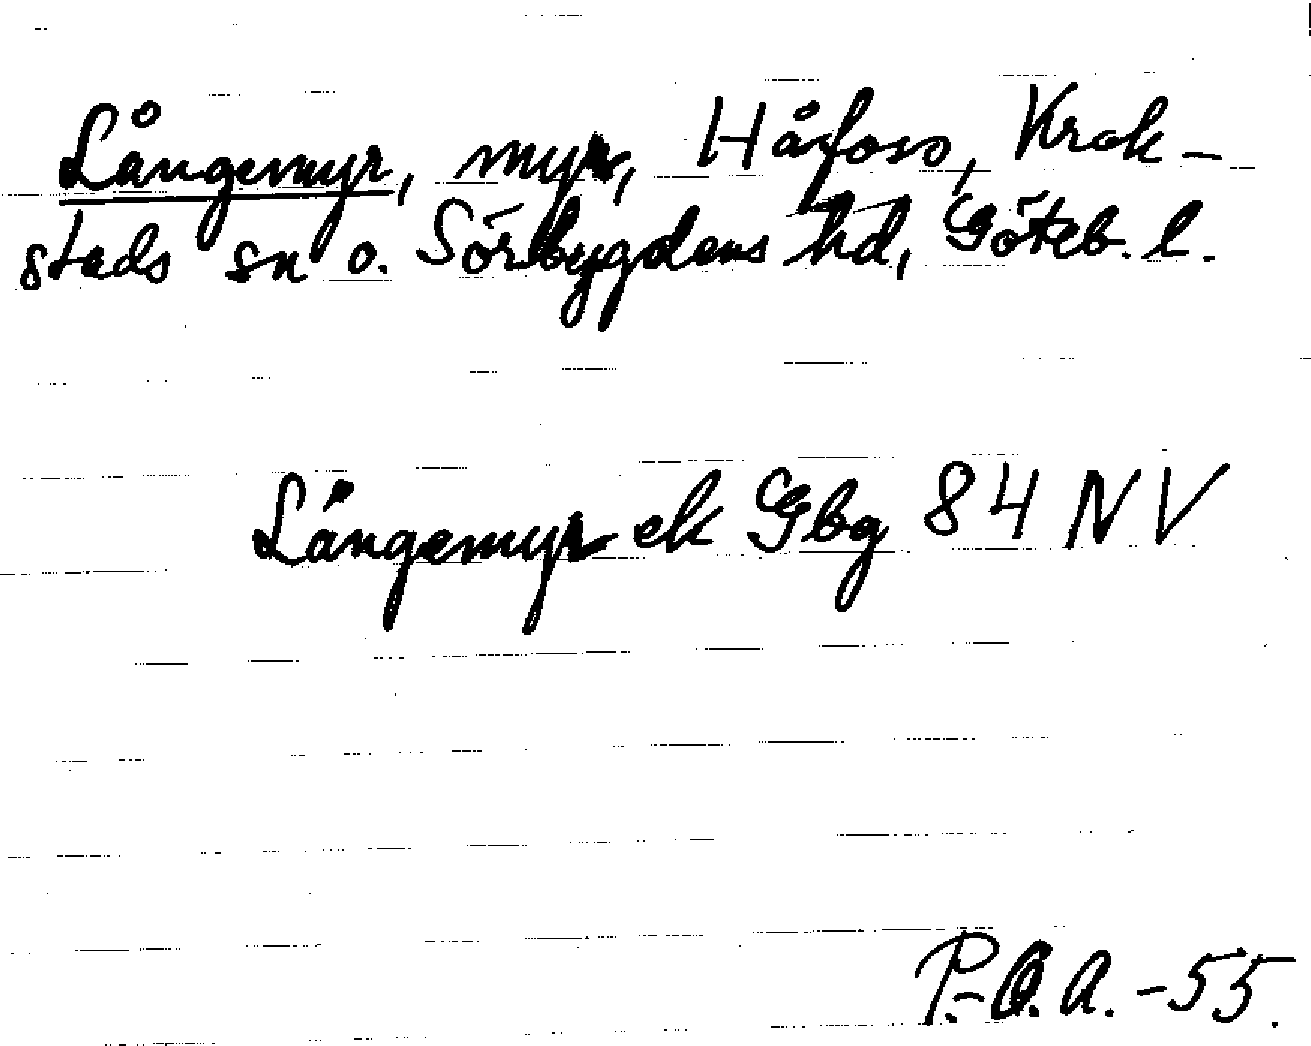 Långemyr, myr, Håfoss, Krok-
stads sn o. Sörbygdens hd, Göteb. l.
Långemyr ek Gbg 84 NV
P.-O.A.-55.